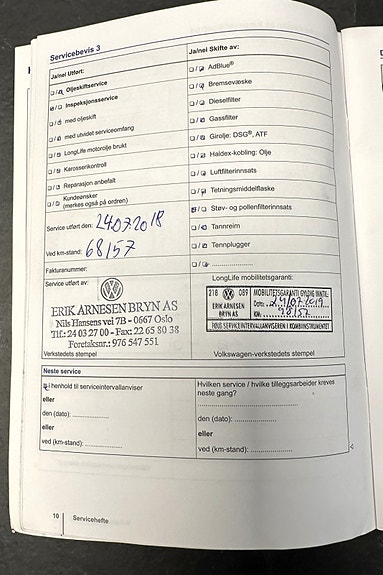 Servicebevis 3
Ja/nei Utført:
Oljeskiftservice
Inspeksjonsservice
med oljeskift
med utvidet serviceomfang
LongLife motorolje brukt
Karosserikontroll
Reparasjon anbefalt
Kundeønsker
(merkes også på ordren)
Service utført den: 24.07.2018
Ved km-stand: 68157
Fakturanummer:
Service utført av:
ERIK ARNESEN BRYN AS
Nils Hansens vei 7B - 0667 Oslo
Tlf.: 24 03 27 00 - Fax: 22 65 80 38
Foretaksnr.: 976 547 551
Verkstedets stempel
Ja/nei Skifte av:
AdBlue®
Bremsevæske
Dieselfilter
Gassfilter
Girolje: DSG®, ATF
Haldex-kobling: Olje
Luftfilterinnsats
Tetningsmiddelflaske
Støv- og pollenfilterinnsats
Tannreim
Tennplugger
LongLife mobilitetsgaranti:
218 089
ERIK ARNESEN
BRYN AS
MOBILITETSGARANTI GYLDIG INNTIL:
Dato: 24/07/2019
KM: 98157
FØLG SERVICEINTERVALLANVISEREN I KOMBIINSTRUMENTET
Volkswagen-verkstedets stempel
Neste service
i henhold til serviceintervallanviser
eller
den (dato):
eller
ved (km-stand):
Hvilken service / hvilke tilleggsarbeider kreves
neste gang?
den (dato):
eller
ved (km-stand):
10 Servicehefte